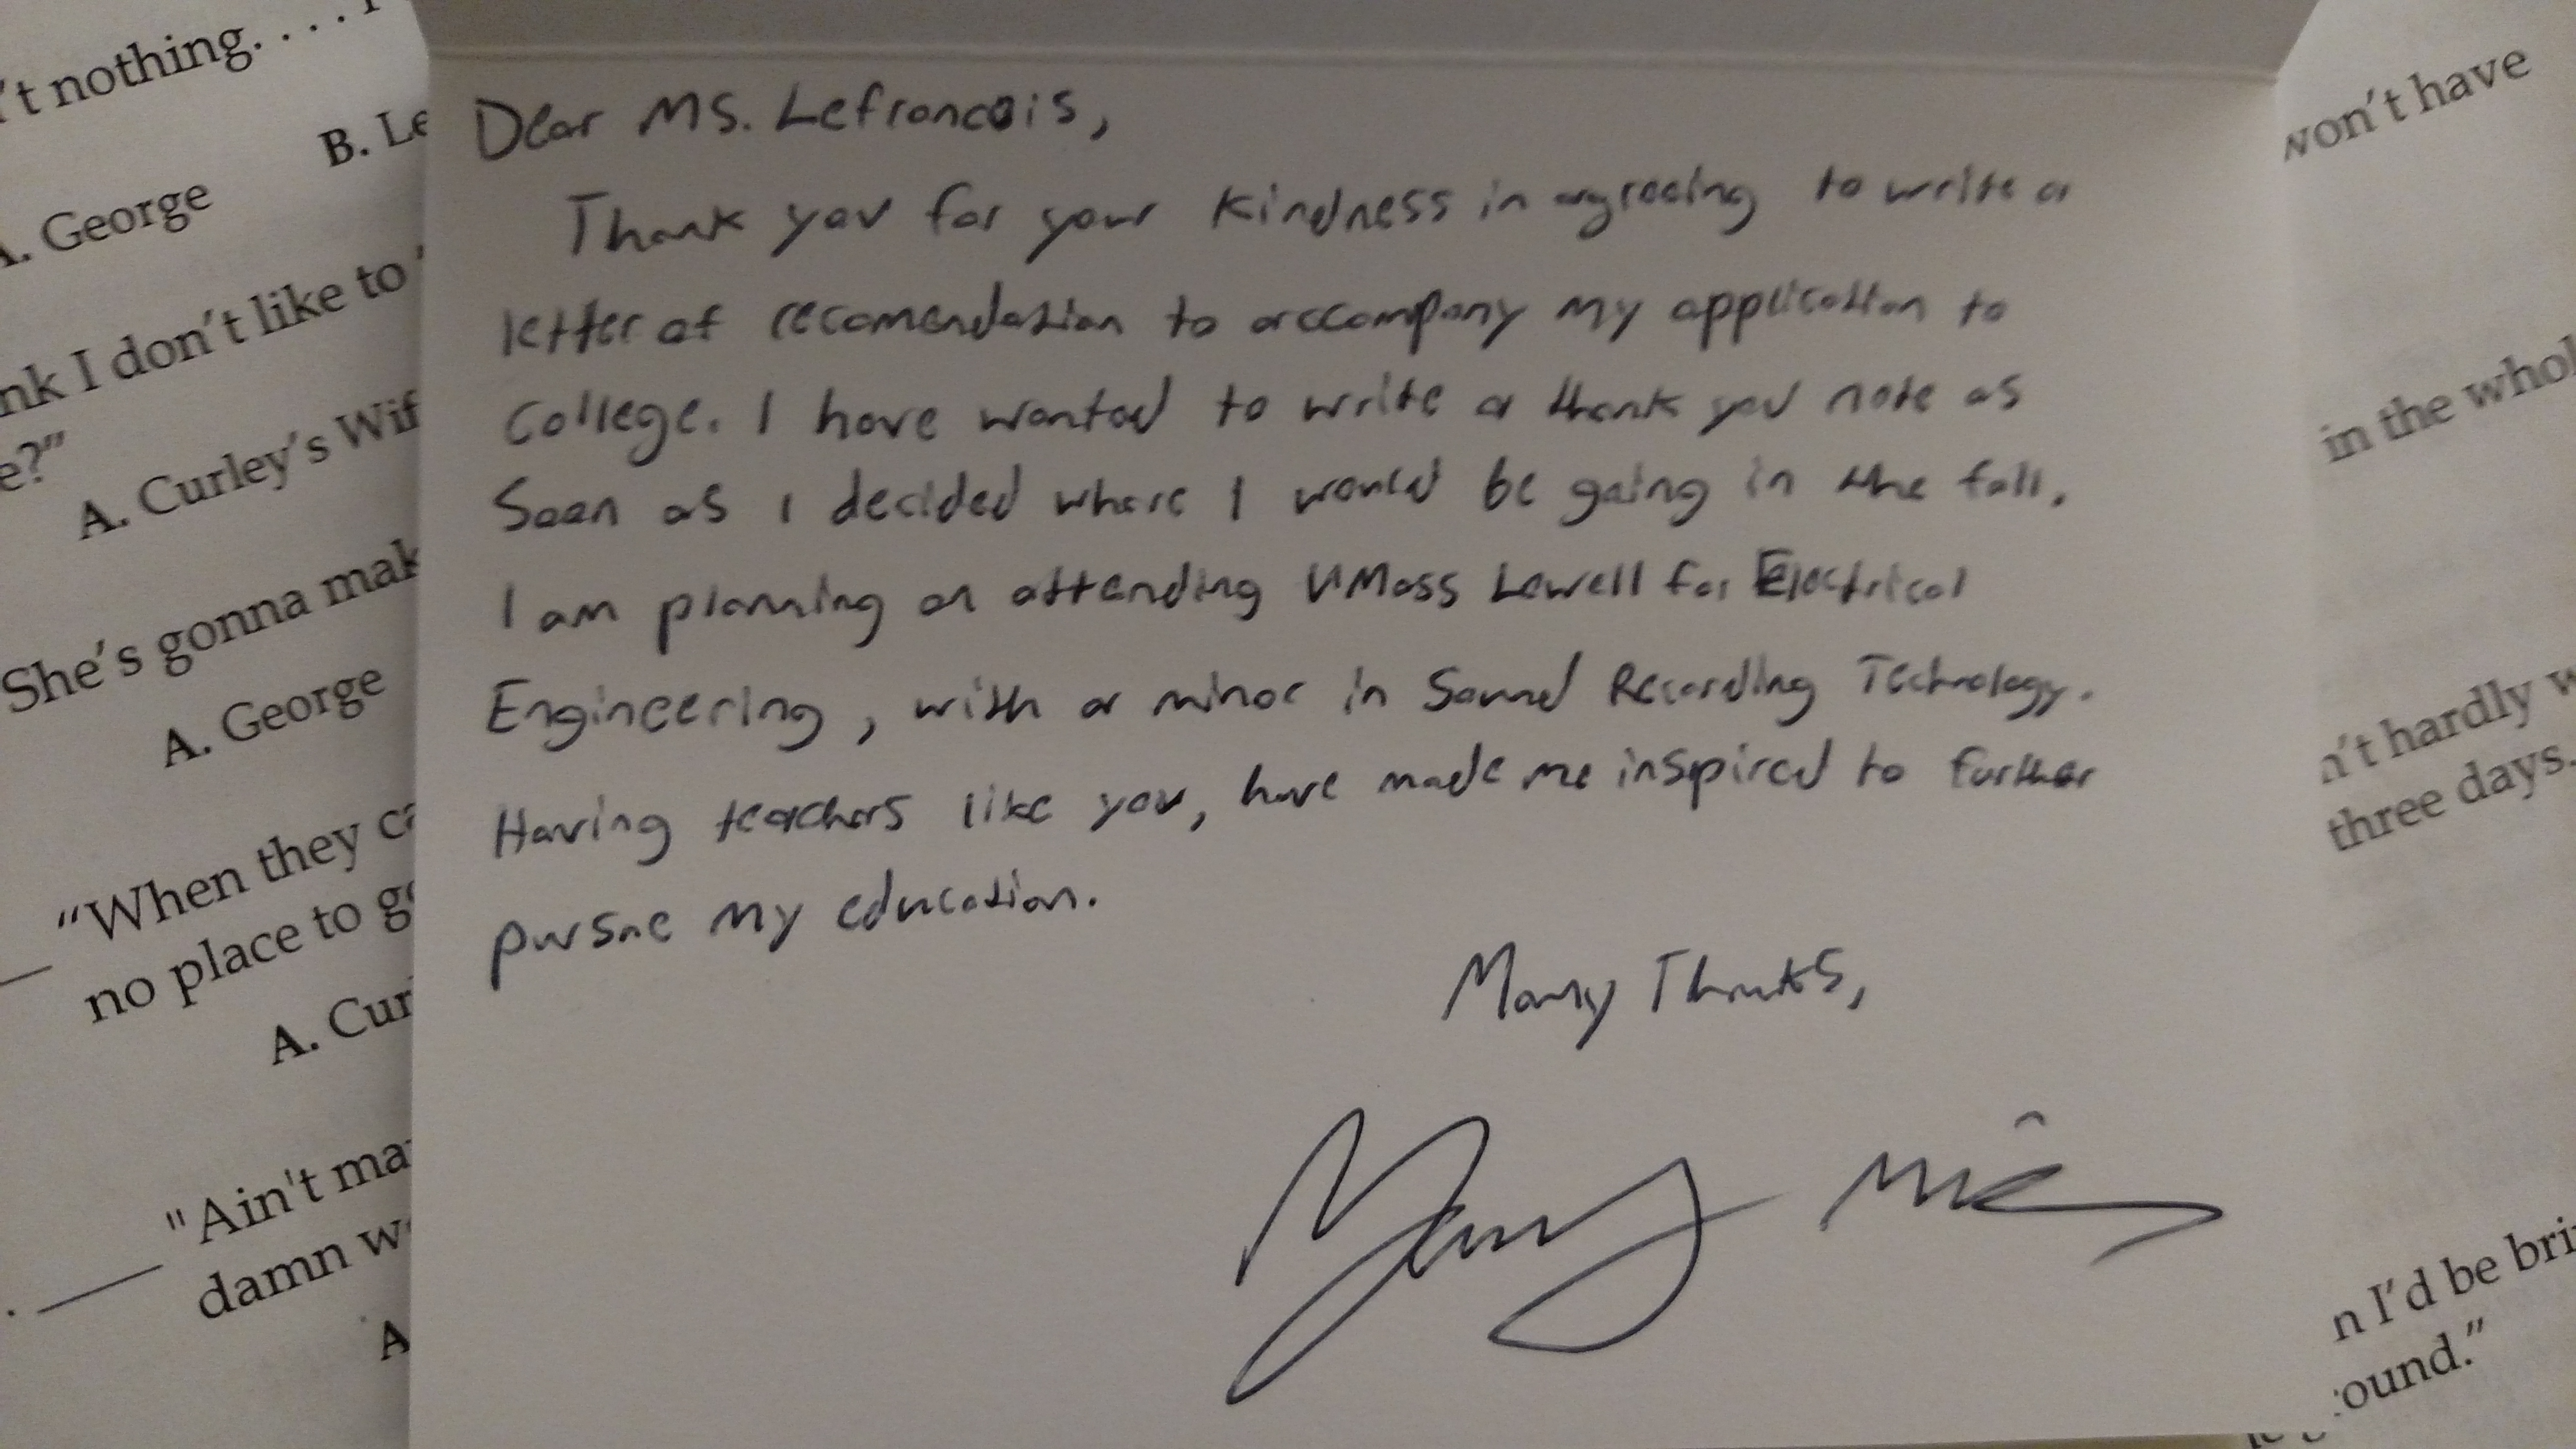 't nothing. . . .
B. Le
A. George
nk I don't like to
e?"
A. Curley's Wif
She's gonna mak
A. George
"When they ca
no place to go
A. Cur
"Ain't ma
damn w
A
Dear Ms. Lefrancois,
Thank you for your kindness in agreeing to write a
letter of recomendation to accompany my application to
College. I have wanted to write a thank you note as
Soon as I decided where I would be going in the fall.
I am planning on attending UMass Lowell for Electrical
Engineering, with a minor in Sound Recording Technology.
Having teachers like you, have made me inspired to further
pursue my education.
Many Thanks,
won't have
in the whol
n't hardly w
three days.
n I'd be bri
ound."